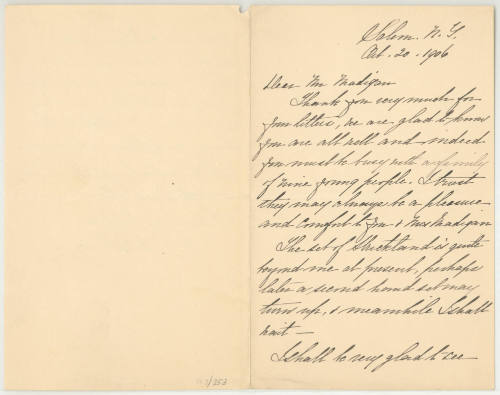 Salem. N. Y.
Oct. 20. 1906
Dear Mr Madigan
Thank you very much for
your letter, we are glad to know
you are all well and indeed
you must be busy with a family
of nine young people. I trust
they may always be a pleasure
and comfort to you & Mrs Madigan
The set of Strickland is quite
beyond me at present, perhaps
later a second hand set may
turn up, & meanwhile I shall
wait —
I shall be very glad to see
/253